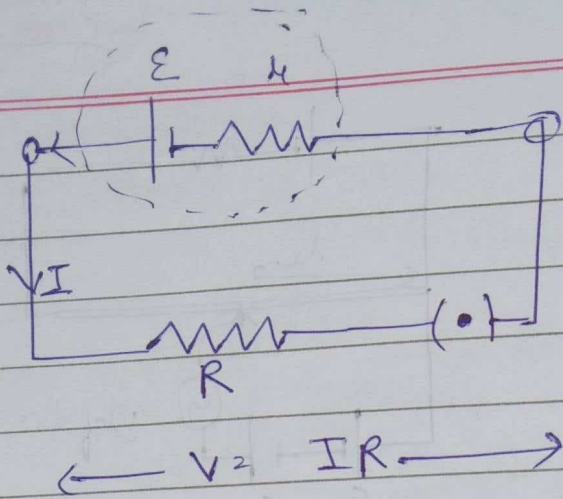 ε r
I
R
V = IR